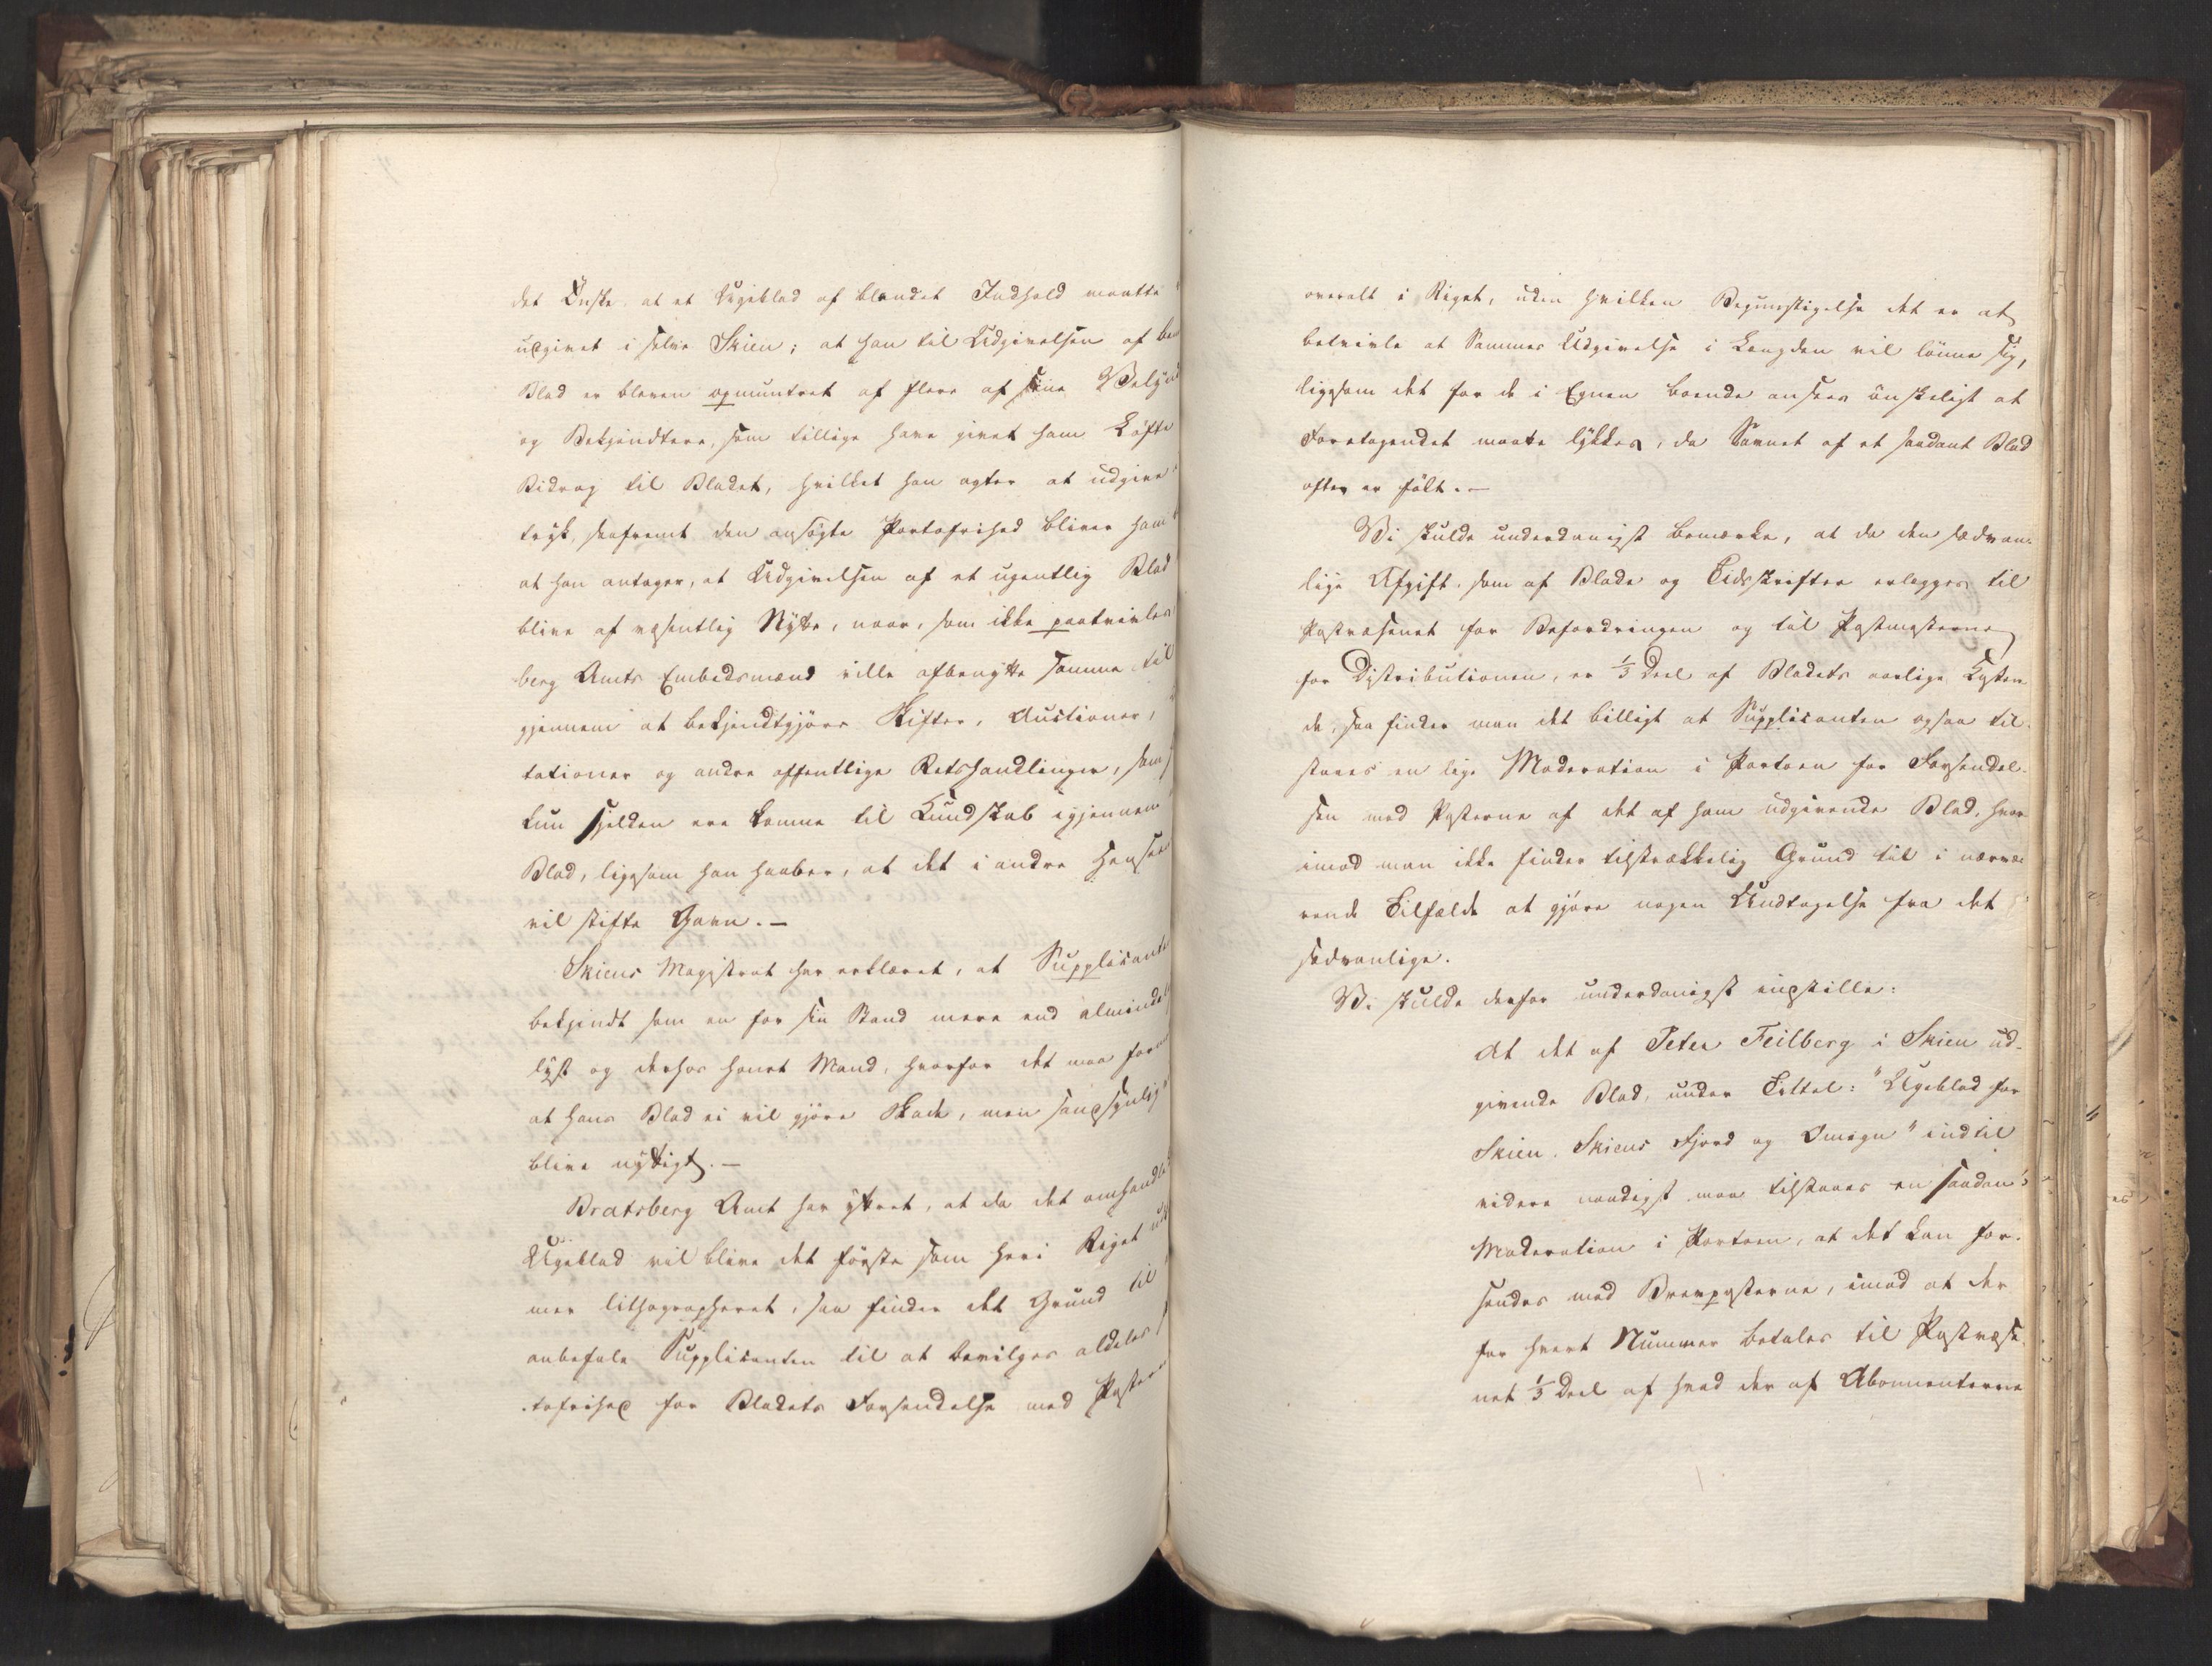 det Ønske at et Ugeblad af blandet Indhold maatte
udgivet i selve Skien; at han til Udgivelsen af
Blad er bleven opmuntret af flere af sine
og Bekjendtere, som tillige have givet ham Løfte
Bidrag til Bladet, hvilket han agter at udgive
tryk, saafremt den ansøgte Portofrihed bliver ham
at han antager, at Udgivelsen af et ugentlig Blad
blive af væsentlig Nytte, naar, som ikke paatvivles
berg Amts Embedsmænd ville afbenytte samme til
gjennem at bekjendtgjøre Skifter, Auctioner,
tationer og andre offentlige Retshandlinger, som
kun sjelden ere komne til Kundskab igjennem
Blad, ligesom han haaber, at det i andre
vil stifte Gavn.-
Skiens Magistrat har erklæret, at
bekjendt som en for sin Stand mere end
lyst og derhos honet Mand, hvorfor det maa
at hans Blad ei vil gjøre Skade, men
blive nyttigt.-
Bratsberg Amt har yttret, at da det
Ugeblad vil blive det første som her i Riget
mer lithographeret, saa finder det Grund til
anbefale Supplicanten til at bevilges aldeles
tofrihed for Bladets Forsendelse med
overalt i Riget, uden hvilken Begunstigelse det er at
betvivle at Sammes Udgivelse i Længden vil lønne sig,
ligesom det for de i Egnen boende ansees ønskeligt at
Foretagendet maate lykkes, da Savnet af et saadant Blad
ofte er følt.-
Vi skulde underdanigst bemærke, at da den sædvan-
lige Afgift som af Blade og Tidsskrifter erlægges til
Postvæsenet for Befordringen og til Postmesterne
for Distributionen, er 1/3 Deel af Bladets aarlige Kosten-
de, saa finder man det billigt at Supplicanten ogsaa til-
staaes en lige Moderation i Portoen for Forsendel-
sen med Posterne af det af ham udgivende Blad, hvor-
imod man ikke finder tilstrækkelig Grund til i nærvæ-
rende Tilfælde at gjøre nogen Undtagelse fra det
sædvanlige.
Vi skulde derfor underdanigst indstille:
At det af Peter Feilberg i Skien ud-
givende Blad, under Tittel: "Ugeblad for
Skien, Skiens Fjord og Omegn" indtil
videre naadigst maa tilstaaes en saadan
Moderation i Portoen, at det kan for-
sendes med Brevposterne, imod at der
for hvert Nummer betales til Postvæse-
net 1/3 Deel af hvad der af Abonnenterne